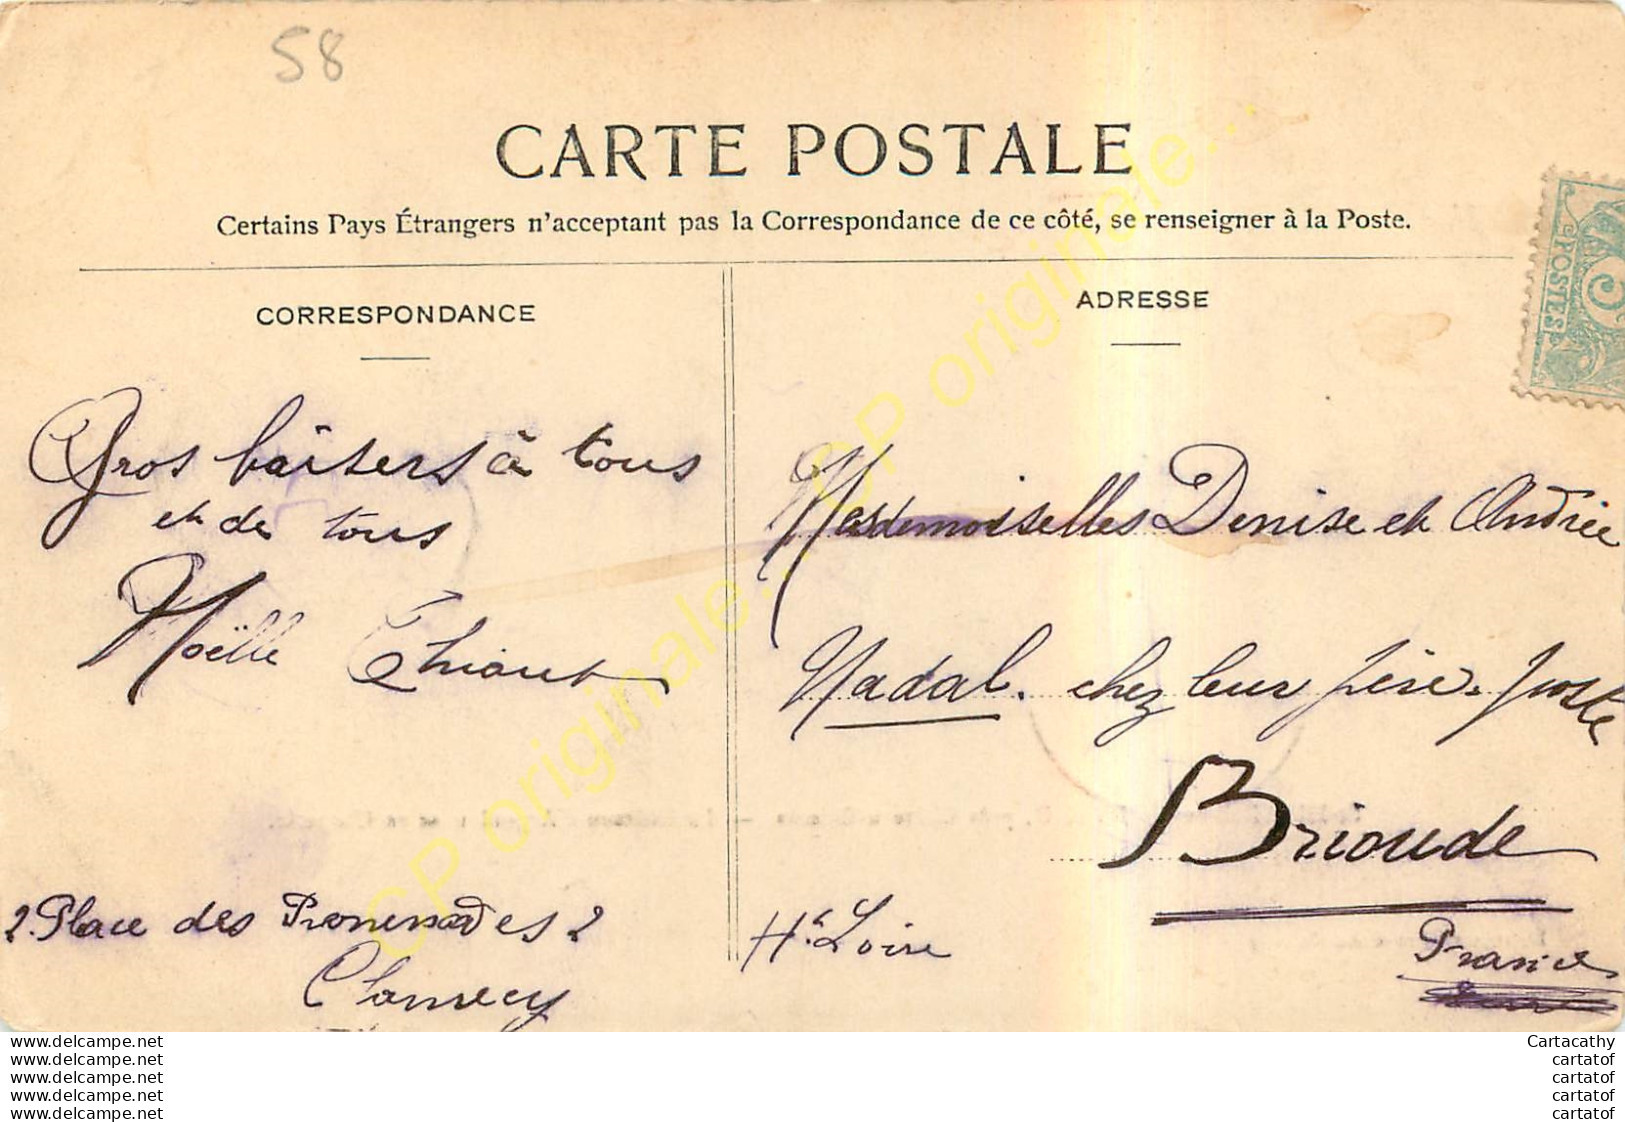 58
CARTE POSTALE
Certains Pays Étrangers n'acceptant pas la Correspondance de ce côté, se renseigner à la Poste.
CORRESPONDANCE
Gros baisers à tous
et de tous
Noëlle Chiout
2. Place des Promenades 2
Clamecy
ADRESSE
POSTES
5
Mesdemoiselles Denise et Andrée
Nadal. chez leur père. poste
Brioude
Hte Loire
France
CP originale... CP originale... CP originale...
www.delcampe.net
www.delcampe.net
www.delcampe.net
www.delcampe.net
www.delcampe.net
Cartacathy
cartatof
cartatof
cartatof
cartatof